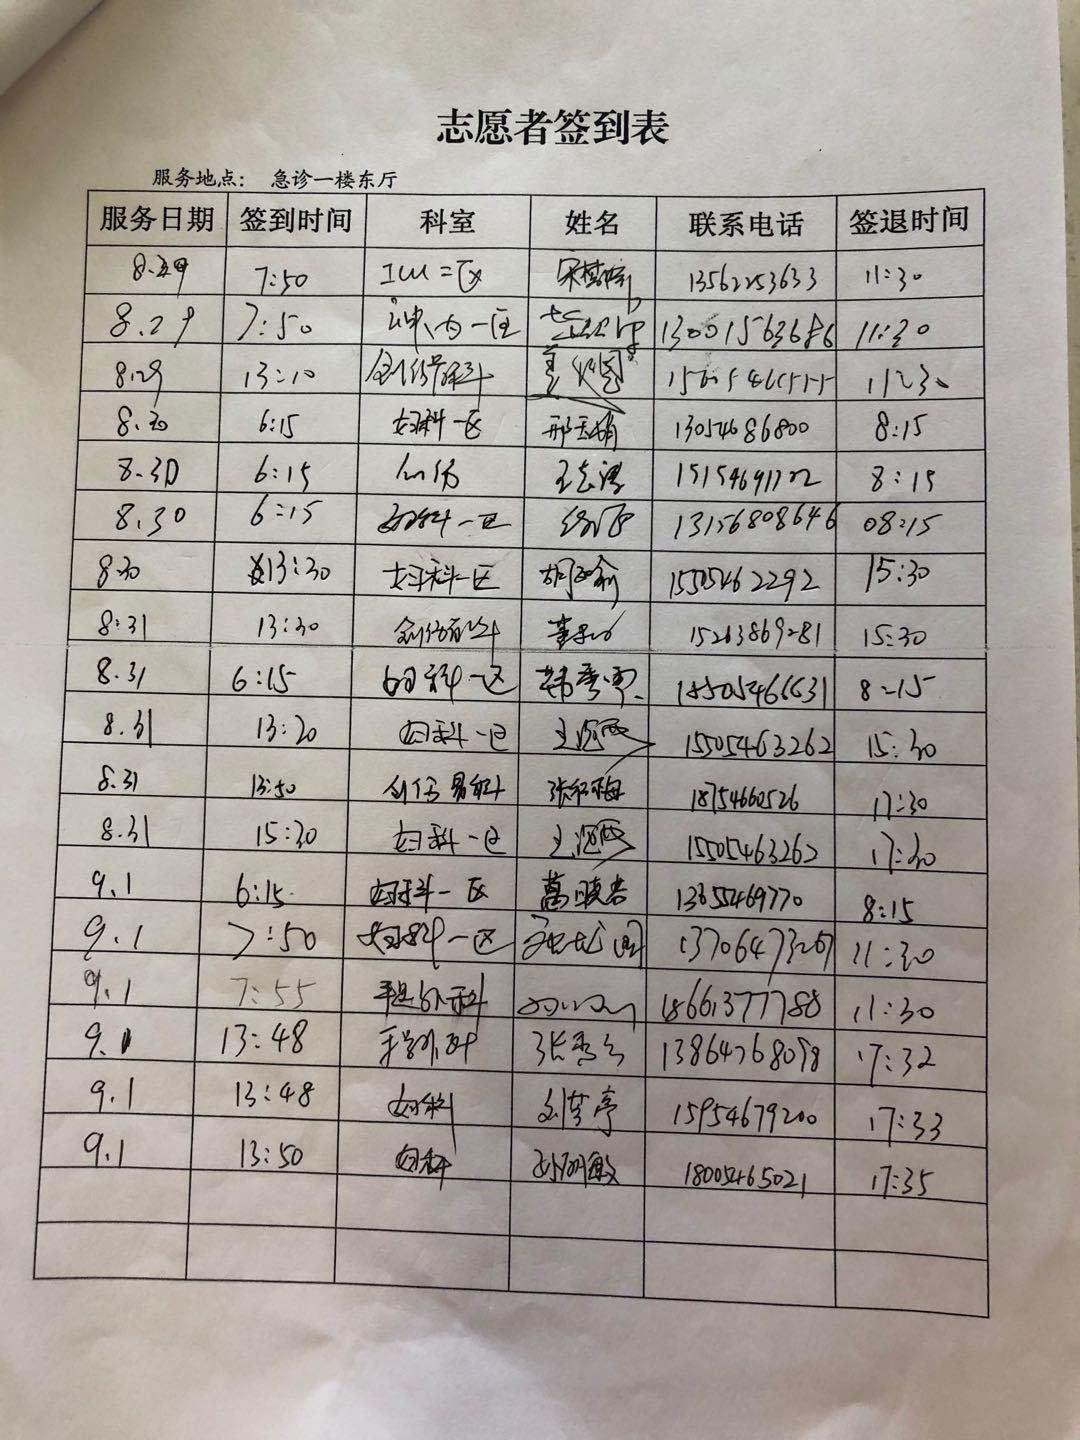 志愿者签到表
服务地点： 急诊一楼东厅
服务日期 签到时间 科室 姓名 联系电话 签退时间
8.29 7:50 ICU二区 13562253633 11:30
8.29 7:50 神内一区 13001563686 11:30
8.29 13:10 创伤骨科 11:30
8.30 6:15 妇科一区 13054686800 8:15
8.30 6:15 8:15
8.30 6:15 妇科一区 13156808646 08:15
8.30 13:30 妇科一区 15505462292 15:30
8.31 13:30 15263869281 15:30
8.31 6:15 妇科一区 韩秀雯 8:15
8.31 13:20 妇科一区 15505463262 15:30
8.31 13:50 张红梅 18754660526 17:30
8.31 15:30 妇科一区 15505463262 17:30
9.1 6:15 妇科一区 葛晓岩 13655469770 8:15
9.1 7:50 妇科一区 13706473267 11:30
9.1 7:55 18661377788 11:30
9.1 13:48 13864768098 17:32
9.1 13:48 妇科 刘梦亭 15954679200 17:33
9.1 13:50 妇科 18005465021 17:35